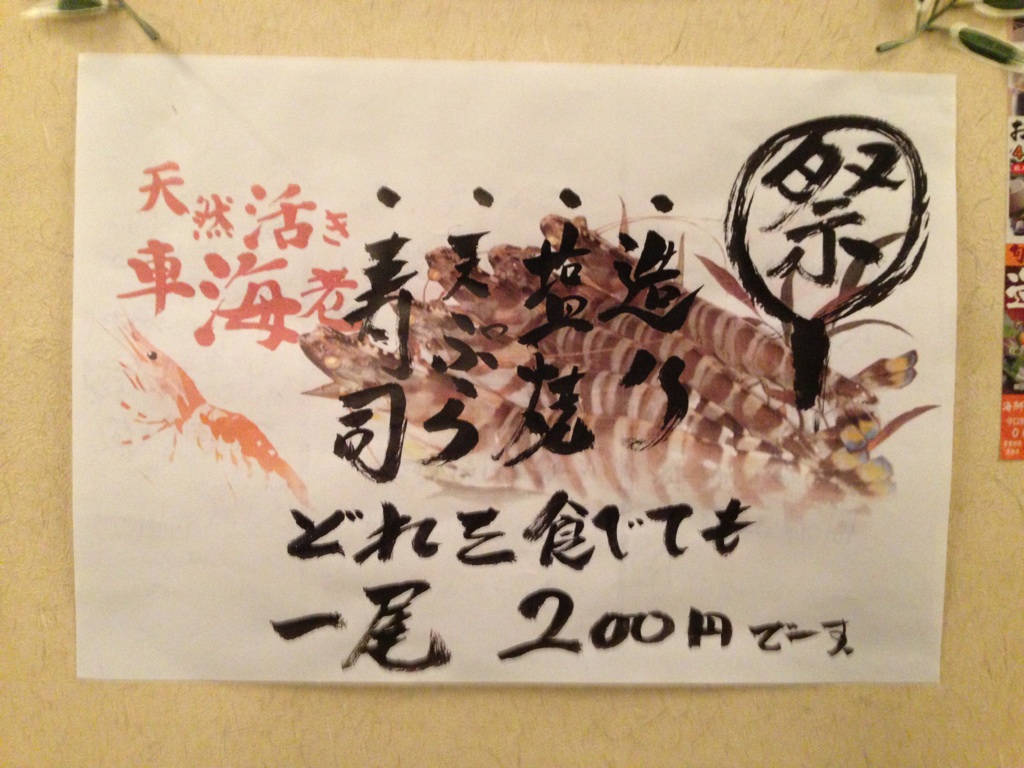 祭
天然活き
車海老
・造り
・塩焼
・天ぷら
・寿司
どれを食べても
一尾 200円でーす